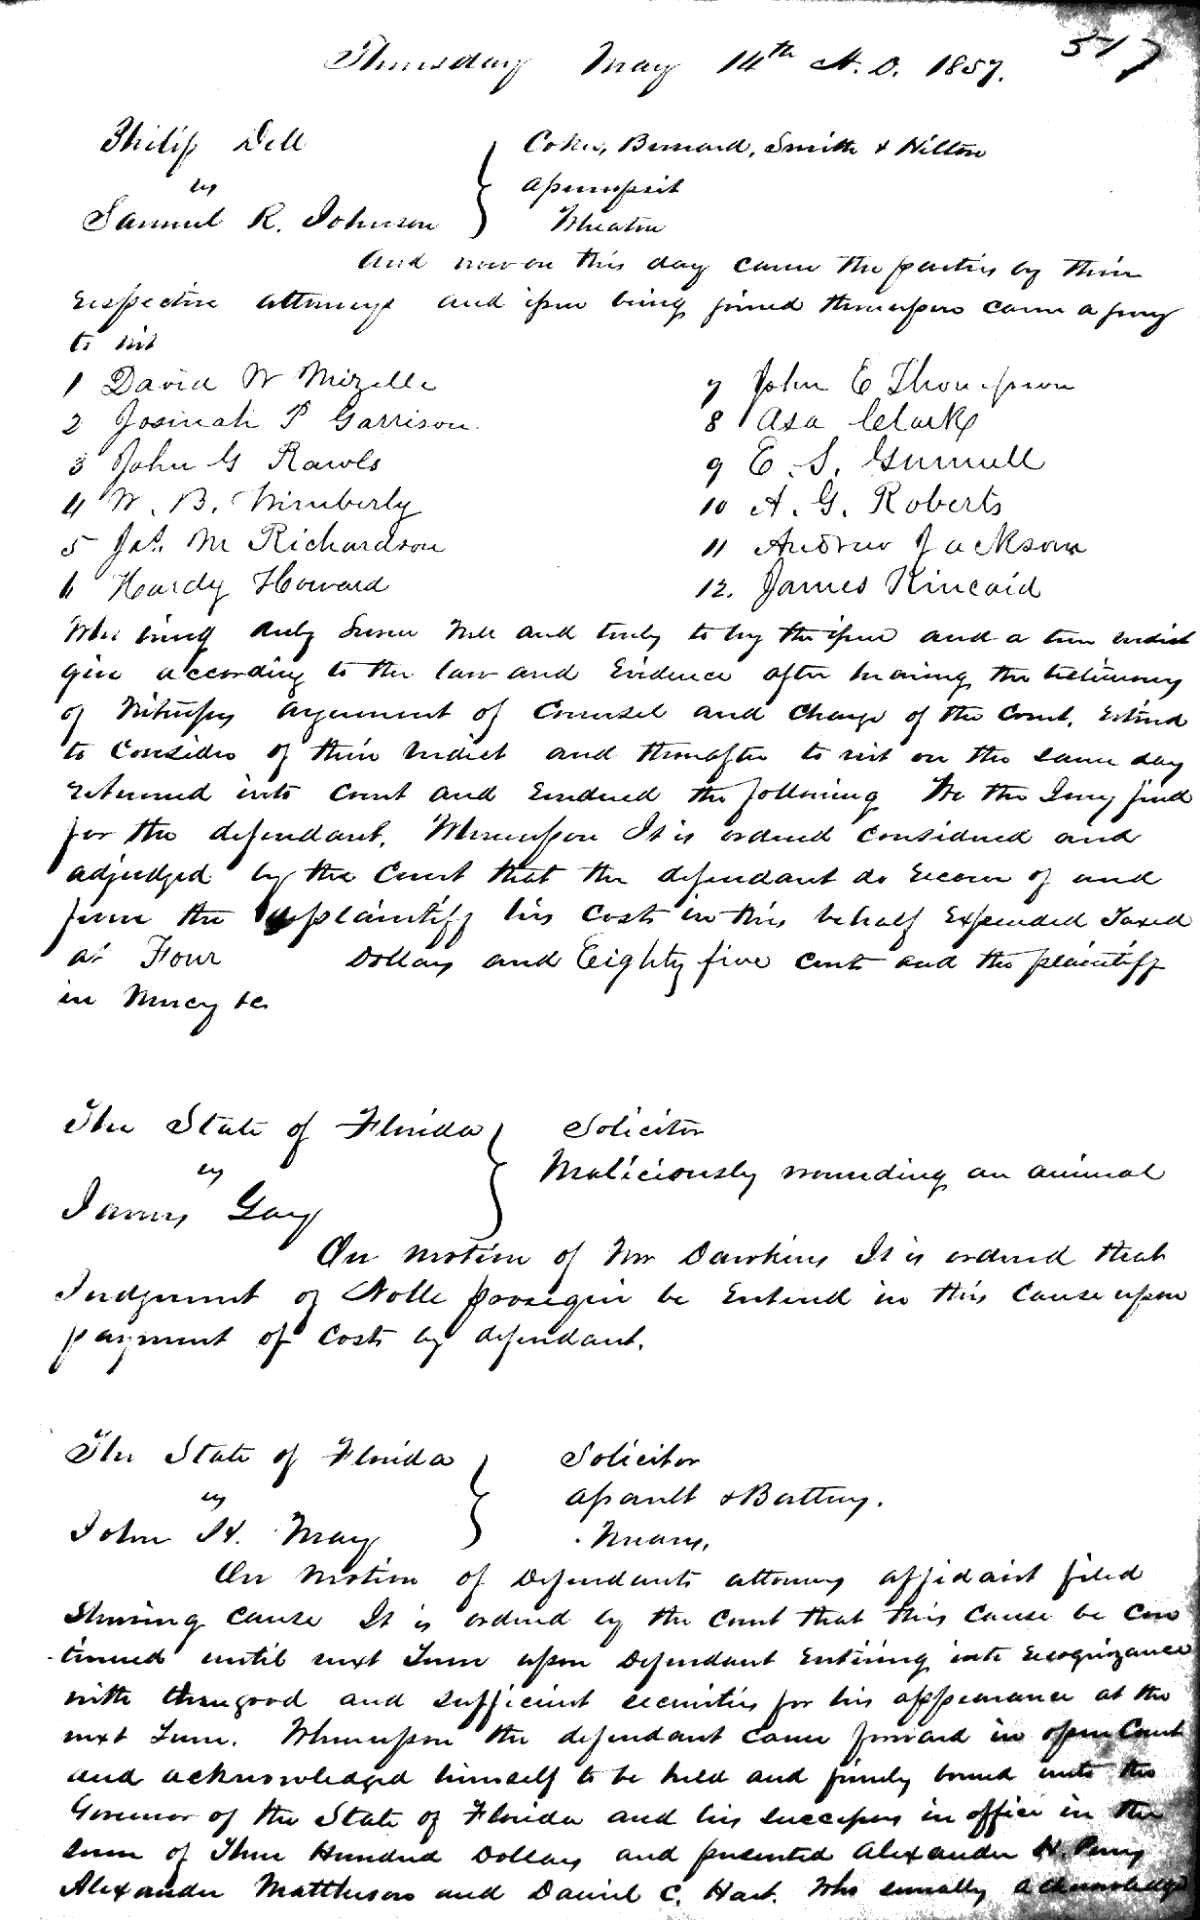 Thursday May 14th A.D. 1857. 517
Philip Dell
vs
Samuel R. Johnson
Coker, Bernard, Smith & Hilton
assumpsit
Wheaton
And now on this day came the parties by their
respective attorneys and issue being joined thereupon came a jury
to wit
1 David W Mizelle
2 Josiah P Garrison
3 John G Rawls
4 W. B. Wimberly
5 Jas. M Richardson
6 Hardy Howard
7 John E Thompson
8 Asa Clark
9 E. S. Gunnell
10 A. G. Roberts
11 Andrew Jackson
12. James Kincaid
Who being duly sworn well and truly to try the issue and a true verdict
give according to the law and Evidence after hearing the testimony
of witnesses argument of Counsel and charge of the Court, retired
to consider of their verdict and thereafter to wit on the same day
returned into Court and rendered the following We the Jury find
for the defendant, Whereupon It is ordered considered and
adjudged by the Court that the defendant do recover of and
from the plaintiff his Costs in this behalf Expended Taxed
at Four Dollars and Eighty five cents and the plaintiff
in Mercy &c
The State of Florida
vs
James Gay
Solicitor
Maliciously wounding an animal
On motion of Mr Dawkins It is ordered that
Judgment of Nolle prosequi be Entered in this Cause upon
payment of Costs by defendant.
The State of Florida
vs
John H. May
Solicitor
assault & Battery.
Means.
On motion of Defendants attorney affidavit filed
Showing cause It is ordered by the Court that this cause be con
-tinued until next Term upon Defendant Entering into recognizance
with three good and sufficient securities for his appearance at the
next Term. Whereupon the defendant came forward in open Court
and acknowledged himself to be held and firmly bound unto the
Governor of the State of Florida and his successors in office in the
sum of Three Hundred Dollars and presented Alexander H. Perry
Alexander Matthews and Daniel C. Hart. Who severally acknowledge